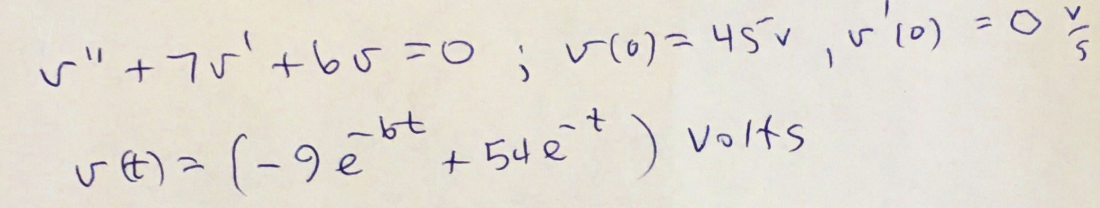 v'' + 7v' + 6v = 0 ; v(0) = 45 v , v'(0) = 0 v/s
v(t) = (-9e^{-6t} + 54e^{-t}) volts